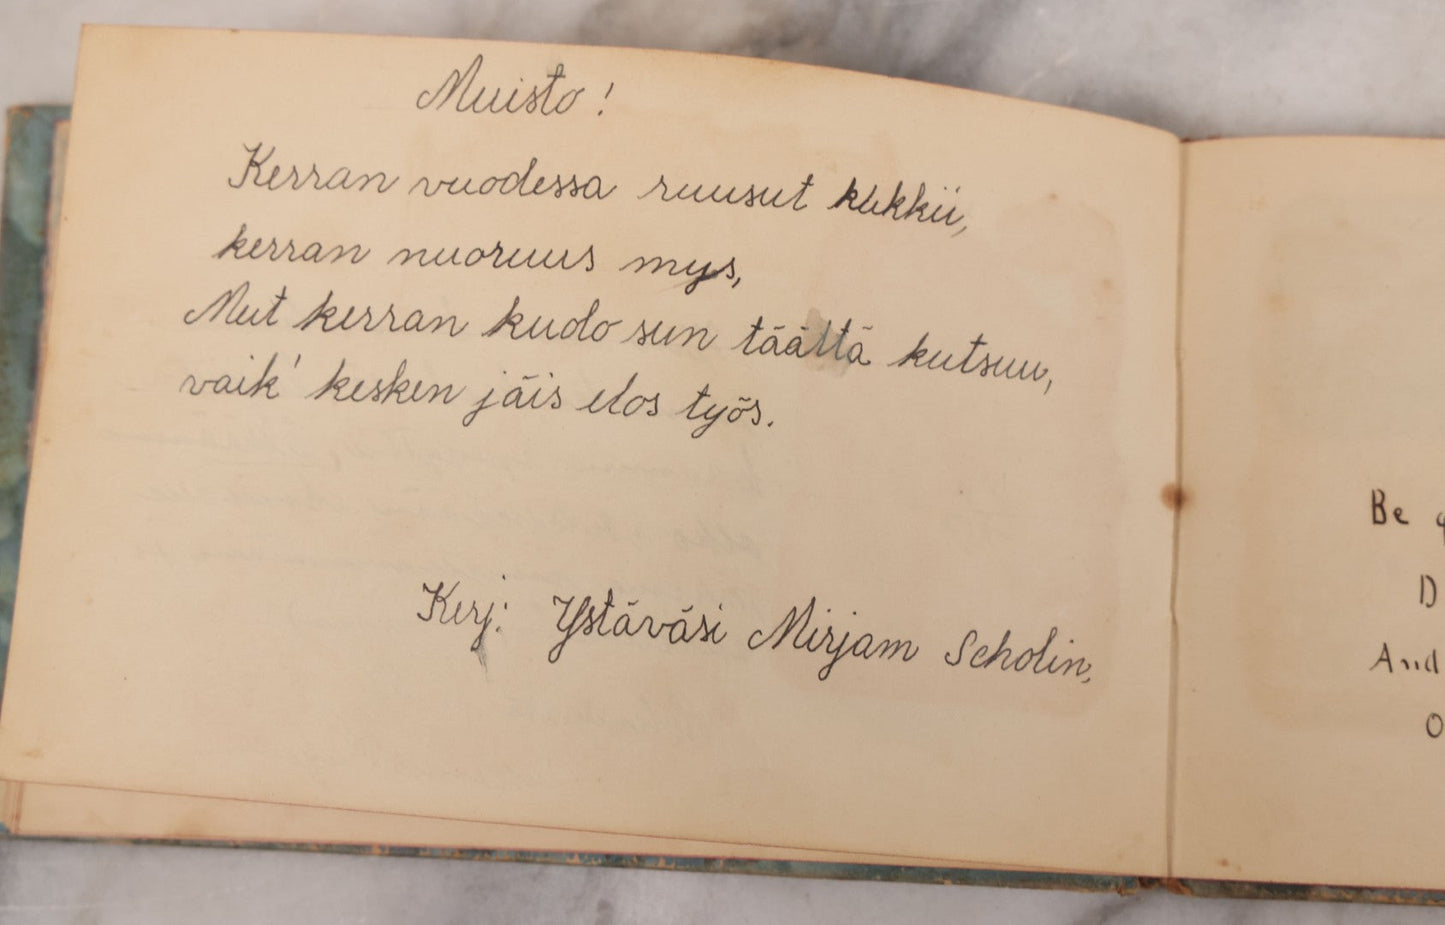 Muisto!
Kerran vuodessa ruusut kukkii,
kerran nuoruus mys,
Mut kerran kudo sun täältä kutsuu,
vaik' kesken jäis elos työs.
Kerj: Ystäväsi Mirjam Scholin,
Be
D
And
O